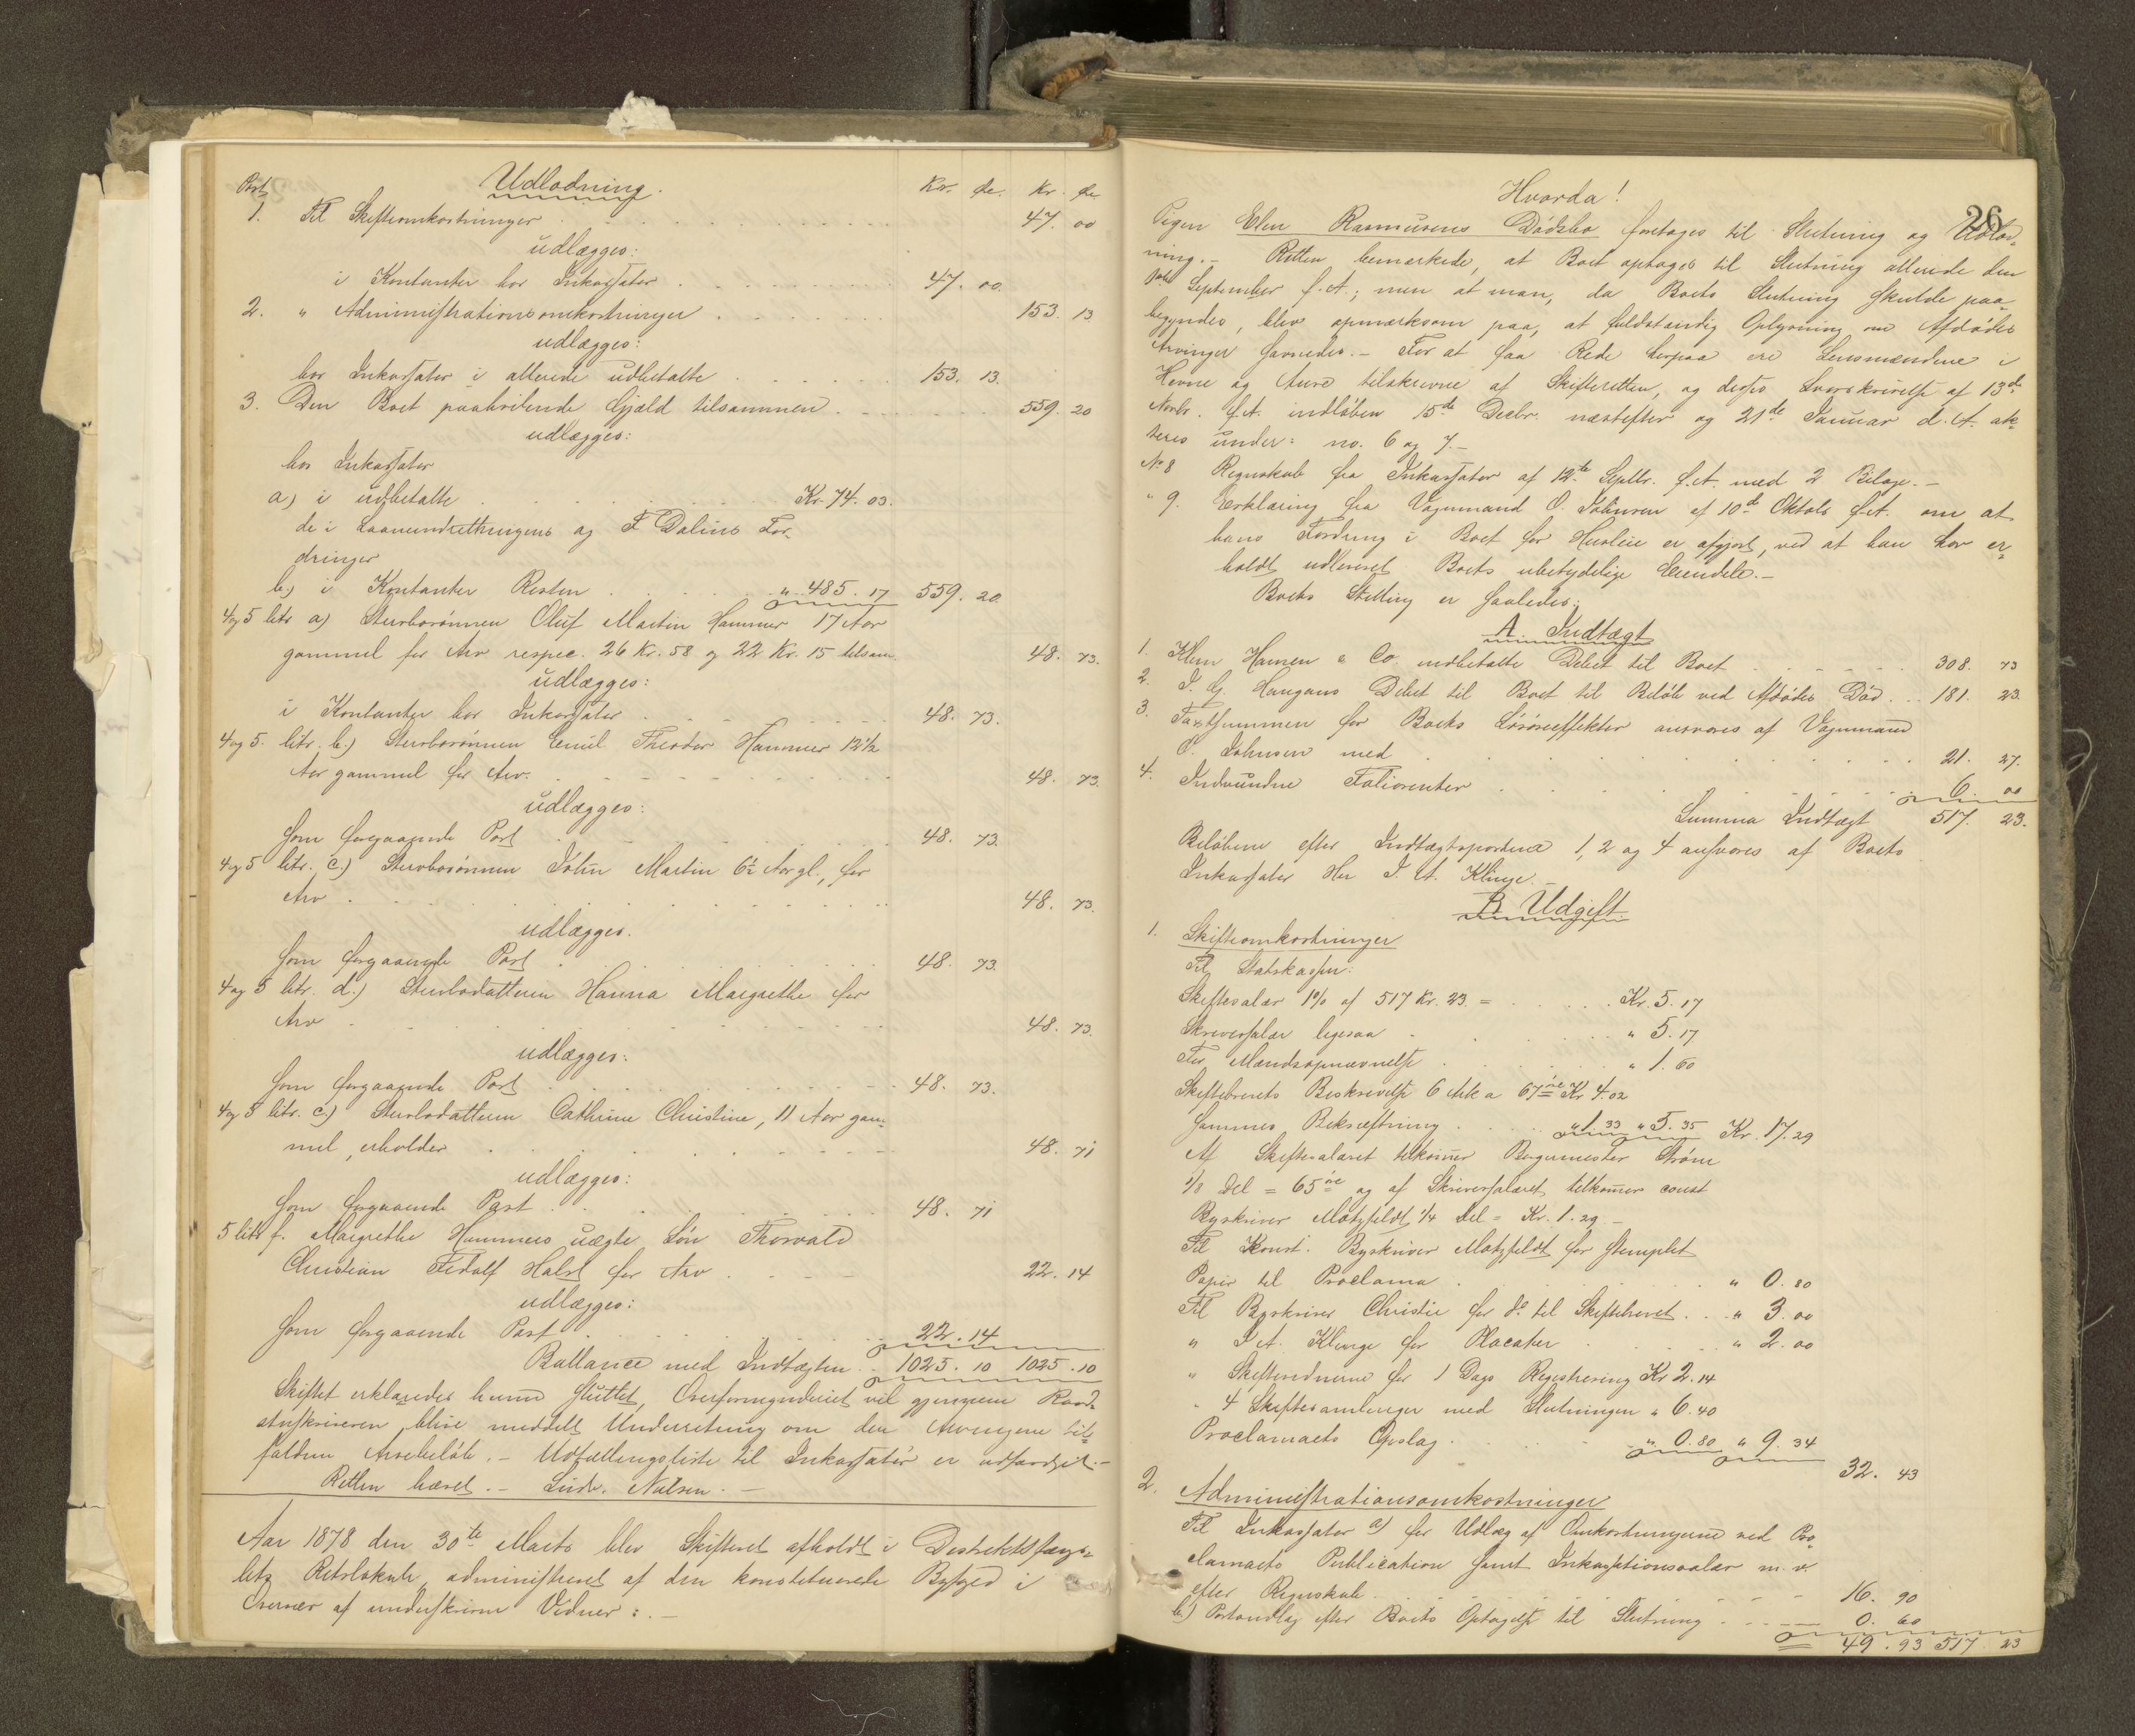 Post Udlodning. Kr. Øre. Kr. Øre
1. Til Skifteomkostninger 47. 00
udlægges:
i Kontanter hos Inkassator 47. 00.
2. " Administrationsomkostninger 153. 13.
udlægges:
hos Inkassator i allerede udbetalte 153. 13.
3. Den Boet paahvilende Gjæld tilsammen 559. 20
udlægges:
hos Inkassator
a) i udbetalte Kr. 74. 03.
de i Laaneindretningens og F Dalins For-
dringer
b) i Kontanter Resten " 485. 17 559. 20.
4 og 5 litr a) Stervbosønnen Oluf Martin Hammer 17 Aar
gammel for Arv respec. 26 Kr. 58 og 22 Kr. 15 tilsam. 48. 73.
udlægges:
i Kontanter hos Inkassator 48. 73.
4 og 5. litr. b.) Stervbosønnen Emil Theodor Hammer 12 1/2
Aar gammel for Arv. 48. 73.
udlægges:
som foregaaende Post 48. 73.
4 og 5 litr. c.) Stervbosønnen John Martin 6 1/2 Aar gl., for
Arv 48. 73.
udlægges.
som foregaaende Post 48. 73.
4 og 5 litr. d.) Stervbodatteren Hanna Margrethe for
Arv 48. 73.
udlægges:
som foregaaende Post 48. 73.
4 og 5 litr. e.) Stervbodatteren Cathrine Christine, 11 Aar gam-
mel, erholder 48. 71
udlægges:
som foregaaende Post 48. 71
5 litr f. Margrethe Hammers uægte Søn Thorvald
Christian Fidolf Holst for Arv 22. 14
udlægges:
som foregaaende Post 22. 14
Ballance med Indtægten 1025. 10 1025. 10
Skiftet erklæredes hermed sluttet, Overformynderiet vil gjennem Raad-
stuskriveren blive meddelt Underretning om den Arvingerne til-
faldne Arvebeløb. - Udfællingsliste til Inkassator er udfærdiget. -
Retten hævet. - Lindr. Nilsen. -
Aar 1878 den 30te Marts blev Skifteret afholdt i Distriktsfæng-
lets Retslokale, administreret af den konstituerede Byfoged i
Overvær af underskrevne Vidner: . -
26
Hvorda!
Pigen Elen Rasmusens Dødsbo foretages til Slutning og Udlod-
ning. - Retten bemærkede, at Boet optoges til Slutning allerede den
September f. A.; men at man, da Boets Slutning skulde paa-
begyndes, blev opmærksom paa, at fuldstændig Oplysning om Afdødes
Arvinger savnedes. - For at faa Rede herpaa ere Lensmændene i
Hevne og Aure tilskrevne af Skifteretten, og disses Svarskrivelse af 13de
Novbr. f. A. indløben 15de Decbr. næstefter og 21de Januar d. A. ak-
teres under: no. 6 og 7. -
No 8 Regnskab fra Inkassator af 12te Septbr. f. A. med 2 Bilage. -
" 9. Erklæring fra Vognmand O. Johnsen af 10de Oktob f. A. om at
hans Fordring i Boet for Husleie er afgjort, ved at han har er-
holdt udleveret Boets ubetydelige Eiendele. -
Boets Stilling er saaledes:
A. Indtægt
1. Klem Hansen & Co. indbetalte Debet til Boet 308. 73
2. I. G. Haugans Debet til Boet til Beløb ved Afdødes Død 181. 23.
3. Taxtsummen for Boets Løsøreeffekter ansvares af Vognmand
O. Johnsen med 21. 27.
4. Indvundne Foliorenter 6. 00
Summa Indtægt 517. 23.
Beløbene efter Indtægtsposterne 1, 2 og 4 ansvares af Boets
Inkassator Her I. A. Klinge. -
B. Udgift
1. Skifteomkostninger
Til Statskassen:
Skiftesalær 1% af 517 Kr. 23. = Kr. 5. 17
Skriversalær ligesaa " 5. 17
For Mandsopnævnelse " 1. 60
Skiftebrevets Beskrivelse 6 Ark a 67 øre Kr 4. 02
Sammes Bekræftning " 1. 33 " 5. 35 Kr. 17. 29
Af Skiftesalæret tilkommer Borgermester Strøm
1/8 Del = 65 øre og af Skriversalæret tilkommer const
Byskriver Motzfeldt 1/4 Del = Kr. 1. 29 -
Til Konst. Byskriver Motzfeldt for stemplet
Papir til Proclama " 0. 80
Til Byskriver Christie for do til Skiftebrevet " 3. 00
" I A. Klinge for Placater " 2. 00
" Skiftevidnerne for 1 Dags Registrering Kr 2. 14
" 4 Skiftesamlinger med Slutningen " 6. 40
Proclamaets Opslag " 0. 80 " 9. 34
32. 43
2. Administrationsomkostninger
Til Inkassator a) for Udlæg af Omkostningerne ved Pro-
clamaets Publication samt Inkassationssalær m. v.
efter Regnskab 16. 90
b) Portoudlæg efter Boets Optagelse til Slutning 0. 60
49. 93 517. 23